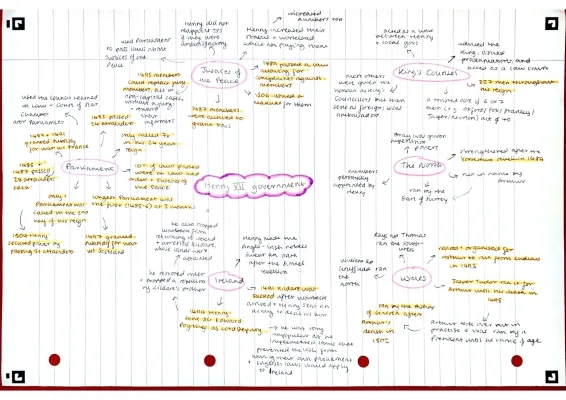 used Parliament
to pass laws about
Justices of the
Peace
Henry did not
Happoint JPs
if they were
unsatisfactory
increased
numbers too
Henry increased their
status + workload
while not paying them
Justices of
the Peace
1495 members
could replace jury
members, act in
non-capital cases
without a jury
+ reward
their
informers
1489 passed a law
allowing for
complaints against
members
1506 issued a
manual for them
1487 members
were allowed to
grant bail
acted as a link
between Henry
+ local govt
advised the
king, issued
proclamations and
acted as a law court
King's Council
227 men throughout
his reign
most others
were given the
Council but then
also had foreign/local
a trusted core of 6 or 7
men (e.g. Oxford/Fox/Bradley/
Army was given
powers
The North
strengthened after the
Yorkshire rebellion 1489
run in name by
Arthur
ran by the
Earl of Surrey
members
personally
appointed by
Henry
used the Council Learned
in Law + Court of Star
Chamber
over Parliament
1489 + 1491
granted subsidy
for war vs France
1495 passed
attainders
only called 7x
in his 24 year
reign
Parliament
1485 +
1487 passed
attainders
each
10% of laws passed
were on law and
order + Justices of
the Peace
only 1
Parliament was
called in the 2nd
half of his reign
longest Parliament was
the first (1485-6) at 3 months
1504 Henry
secured power by
passing 51 attainders
1497 granted
subsidy for war
vs Scotland
Henry VII government
he also stopped
Warbeck from
returning to Ireland
+ arrested Kildare,
whose lands were
attainted
Henry made the
Anglo-Irish nobles
swear an oath
after the Simnel
rebellion
he restored order
+ stopped a rebellion
by Kildare's brother
Ireland
1491 Kildare was
sacked after Warbeck
arrived + Henry sent an
army to deal w/ him
1494 Henry
sent Sir Edward
Poynings as Lord Deputy
he was very
unpopular as he
implemented laws that
prevented the Irish from
having their own Parliament
+ English laws would apply
to Ireland
Rhys ap Thomas
ran the south-
west
William
ran
the north
Wales
revived + organised for
Arthur to run from Ludlow
in 1493
Jasper Tudor ran it for
Arthur until his death in
1495
ran by the Bishop
of Lincoln after
Arthur's
death in
1502
Arthur took over but in
practice it was ran by a
President until he came of age